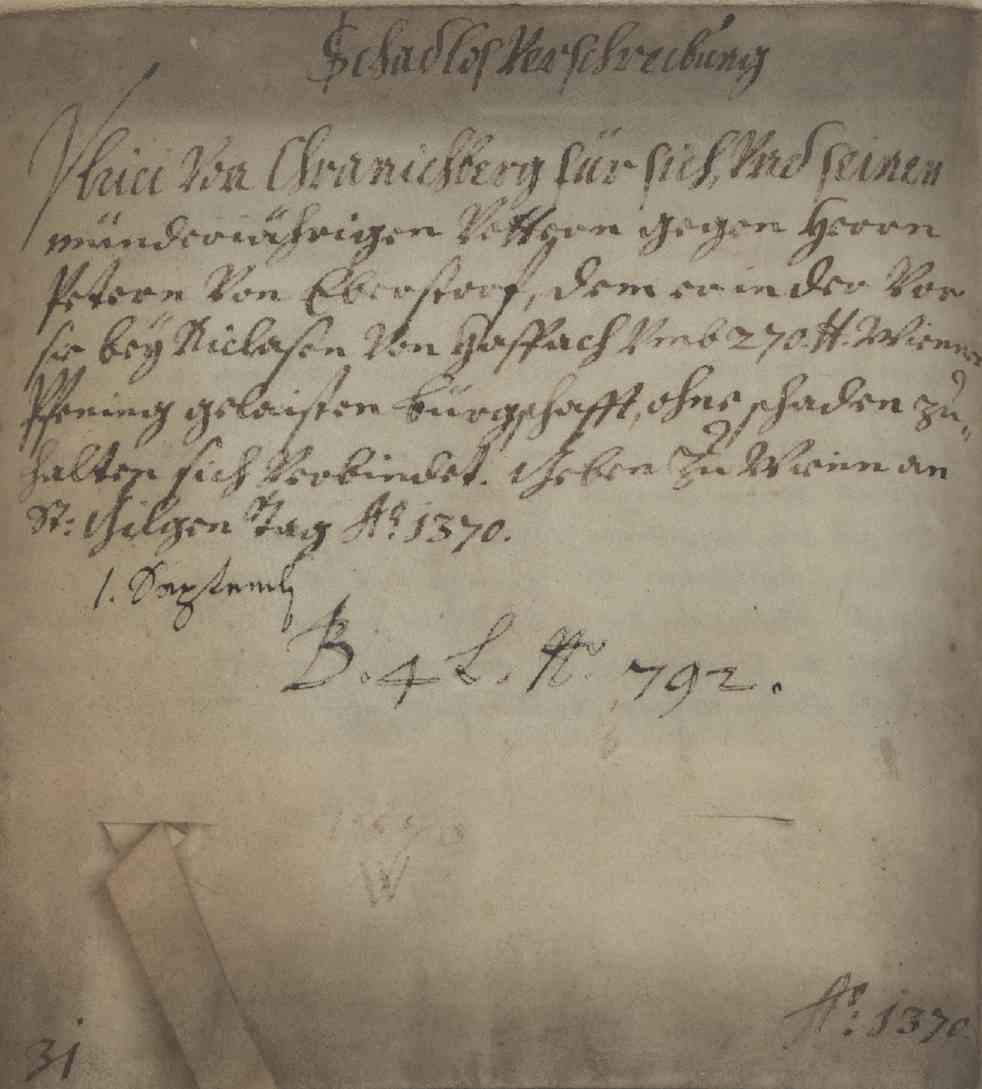 Schadlos Verschreibung
Ulrici Von Chranichberg für sich, Vnd seinen
münderiährigen Vettern gegen Herrn
Petern Von Eberstorf, dem er in der Vor
sie beÿ Niclasen Von Haffach Vmb 270 ℔. Wienner
Pfening gelaisten bürgschafft, ohne schaden zu„
halten sich Verbindet. Geben Zu Wienn an
St: Gilgen Tag Aọ 1370.
1. Septemb
B. 4 L. No. 792.
W
Aọ: 1370
31